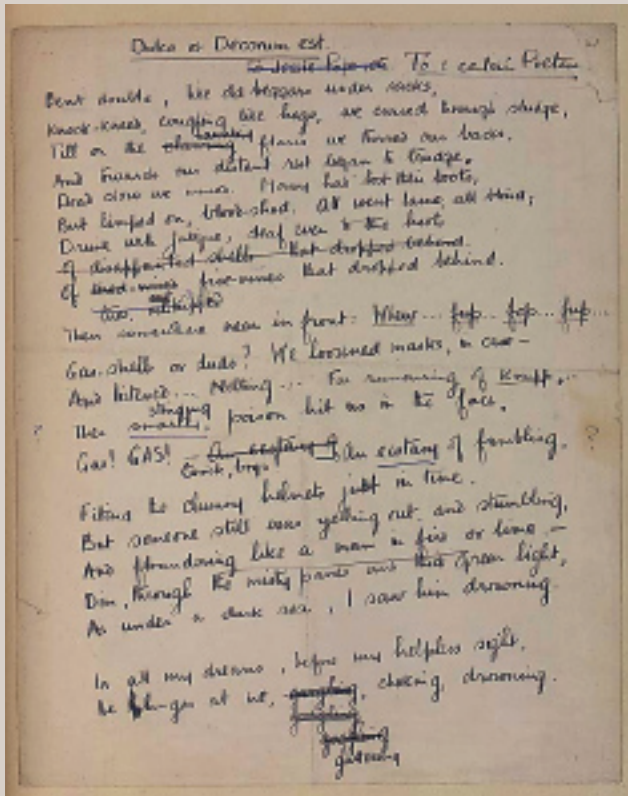 Dulce et Decorum est.
To Jessie Pope etc To a certain Poetess
Bent double, like old beggars under sacks,
Knock-kneed, coughing like hags, we cursed through sludge,
haunting
Till on the flares we turned our backs,
And towards our distant rest began to trudge.
Dead slow we move. Many had lost their boots,
But limped on, blood-shod. All went lame, all blind;
Drunk with fatigue, deaf even to the hoots
Of disappointed shells that dropped behind.
Of five-nines that dropped behind.
Then somewhere near in front: Whew... fup... fop... fup...
Gas-shells or duds? We loosened masks, in case—
And listened... Nothing... Far rumouring of Krupp...
stinging
Then poison hit us in the face.
? Gas! GAS! — An ecstasy of An ecstasy of fumbling, ?
Quick, boys
Fitting the clumsy helmets just in time.
But someone still was yelling out and stumbling,
And floundering like a man in fire or lime.—
Dim, through the misty panes and thick green light,
As under a dark sea, I saw him drowning.
In all my dreams, before my helpless sight,
He plunges at me, gargling, choking, drowning.
gurgling
goggling
guttering